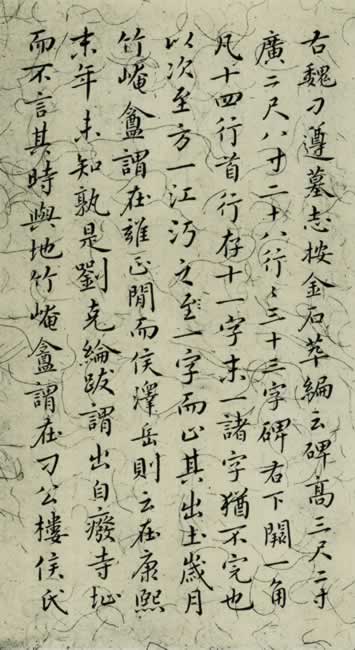 右魏刁遵墓志按金石萃編云碑髙三尺二寸
廣二尺八寸二十八行〻三十三字碑右下闕一角
凡十四行首行存十一字末一諸字猶不完也
以次至方一江沔之至一字而止其出土歲月
竹崦盫謂在雍正閒而侯澤岳則云在康熙
末年未知孰是劉克綸跋謂出自廢寺址
而不言其時與地竹崦盫謂在刁公樓侯氏